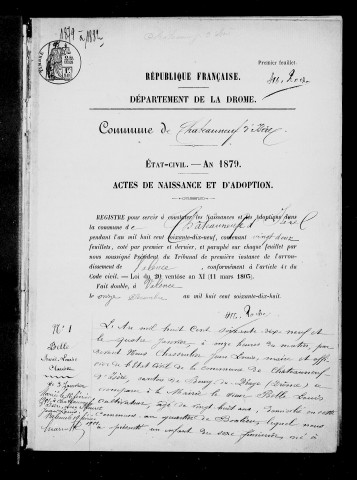 1879 à 1882
Premier feuillet.
RÉPUBLIQUE FRANÇAISE.
DÉPARTEMENT DE LA DROME.
Commune de Chateauneuf d'Isère
ÉTAT-CIVIL. — AN 1879.
ACTES DE NAISSANCE ET D'ADOPTION.
REGISTRE pour servir à constater les Naissances et les Adoptions dans
la commune de Châteauneuf d'Isère
pendant l'an mil huit cent soixante-dix-neuf, contenant vingt deux
feuillets, coté par premier et dernier, et paraphé sur chaque feuillet par
nous soussigné Président du Tribunal de première instance de l'arron-
dissement de Valence, conformément à l'article 41 du
Code civil. — Loi du 20 ventôse an XI (11 mars 1803).
Fait double, à Valence
le onze Décembre an mil huit cent soixante-dix-huit.
N° 1
Belle
L'An mil huit Cent soixante dix neuf et
le quatre janvier, à onze heures du matin, par
devant Nous Jean Louis, maire et offi-
cier de l'Etat Civil de la commune de Chateauneuf
d'Isère, canton de Bourg de Péage (Drôme) a
comparu à la Mairie le sieur Belle Louis
cultivateur, âgé de vingt huit ans, domicilié en cette
commune au quartier de lequel nous
a présenté un enfant du sexe féminin, né à